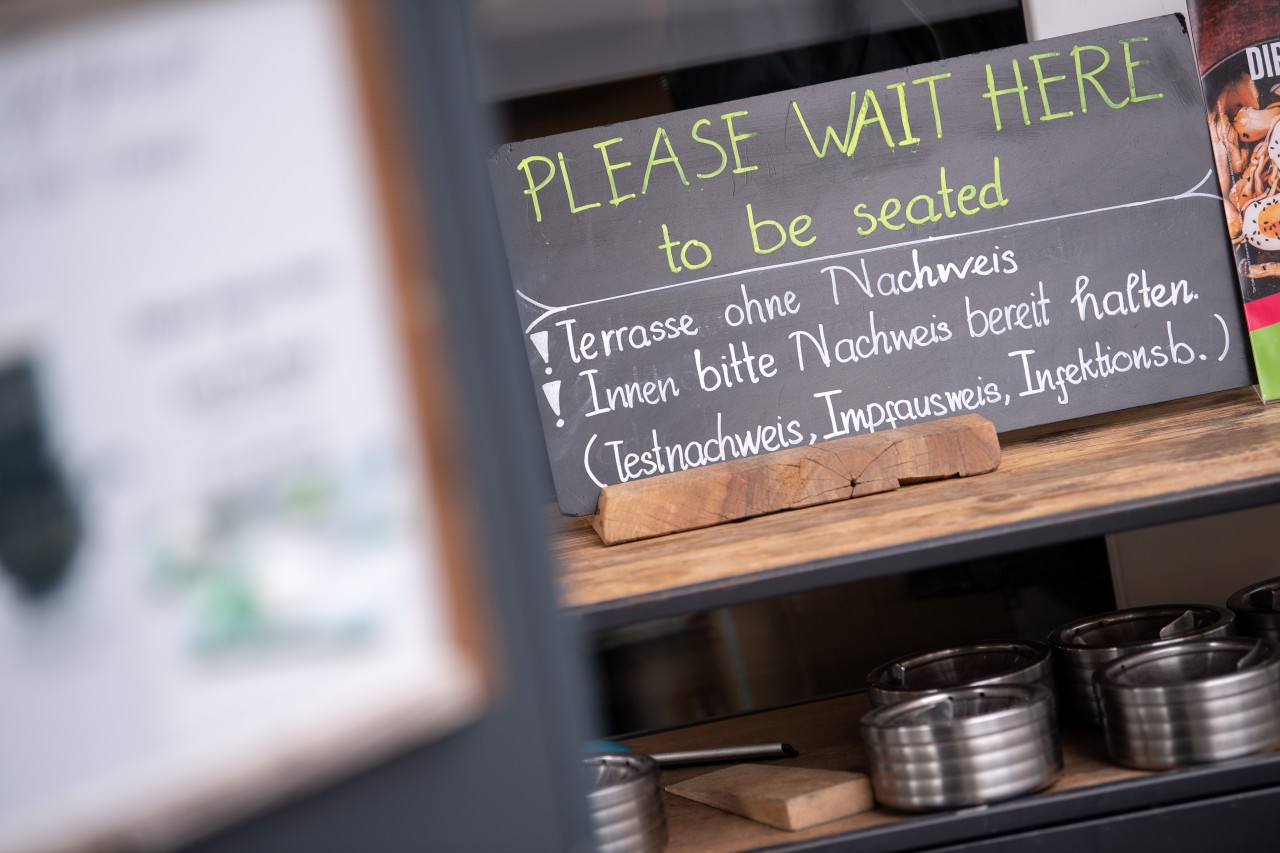 PLEASE WAIT HERE
to be seated
! Terrasse ohne Nachweis
! Innen bitte Nachweis bereit halten.
(Testnachweis, Impfausweis, Infektionsb.)
DIE